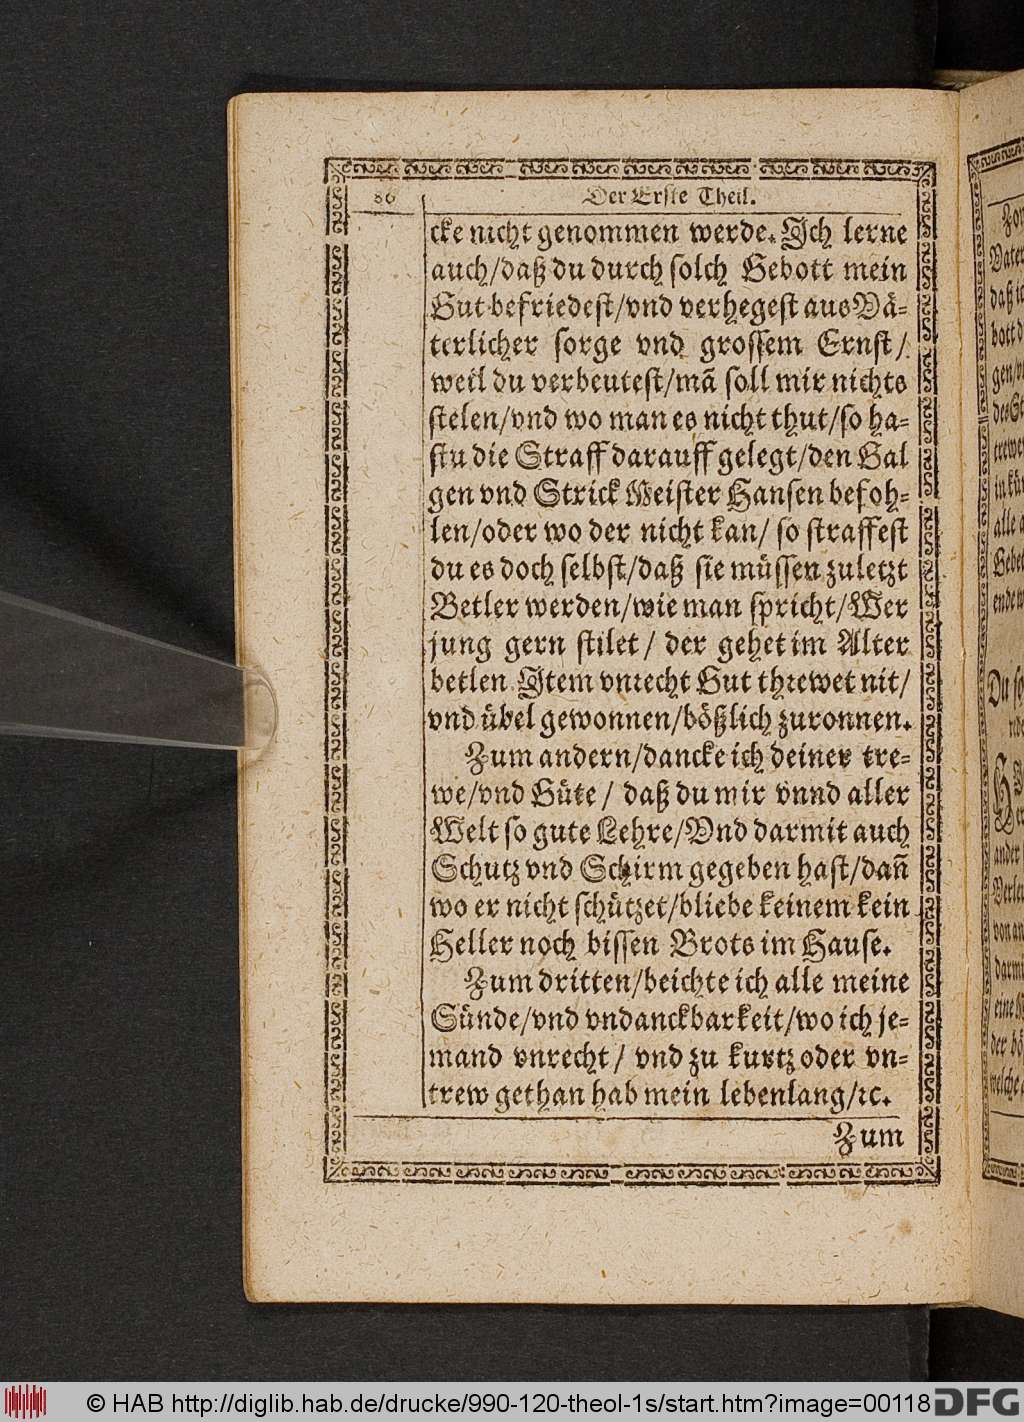 86
Der Erste Theil.
cke nicht genommen werde. Ich lerne
auch/daß du durch solch Gebott mein
Gut befriedest/vnd verhegest aus Vä-
terlicher sorge vnd grossem Ernst/
weil du verbeutest/mã soll mir nichts
stelen/vnd wo man es nicht thut/so ha-
stu die Straff darauff gelegt/den Gal
gen vnd Strick Meister Hansen befoh-
len/oder wo der nicht kan/ so straffest
du es doch selbst/daß sie müssen zuletzt
Betler werden/wie man spricht/Wer
jung gern stilet/ der gehet im Alter
betlen Item vnrecht Gut threwet nit/
vnd übel gewonnen/bößlich zuronnen.
Zum andern/dancke ich deiner tre-
we/vnd Güte/ daß du mir vnnd aller
Welt so gute Lehre/Vnd darmit auch
Schutz vnd Schirm gegeben hast/dañ
wo er nicht schützet/bliebe keinem kein
Heller noch bissen Brots im Hause.
Zum dritten/beichte ich alle meine
Sünde/vnd vndanckbarkeit/wo ich je-
mand vnrecht/ vnd zu kurtz oder vn-
trew gethan hab mein lebenlang/ꝛc.
Zum
© HAB http://diglib.hab.de/drucke/990-120-theol-1s/start.htm?image=00118
DFG